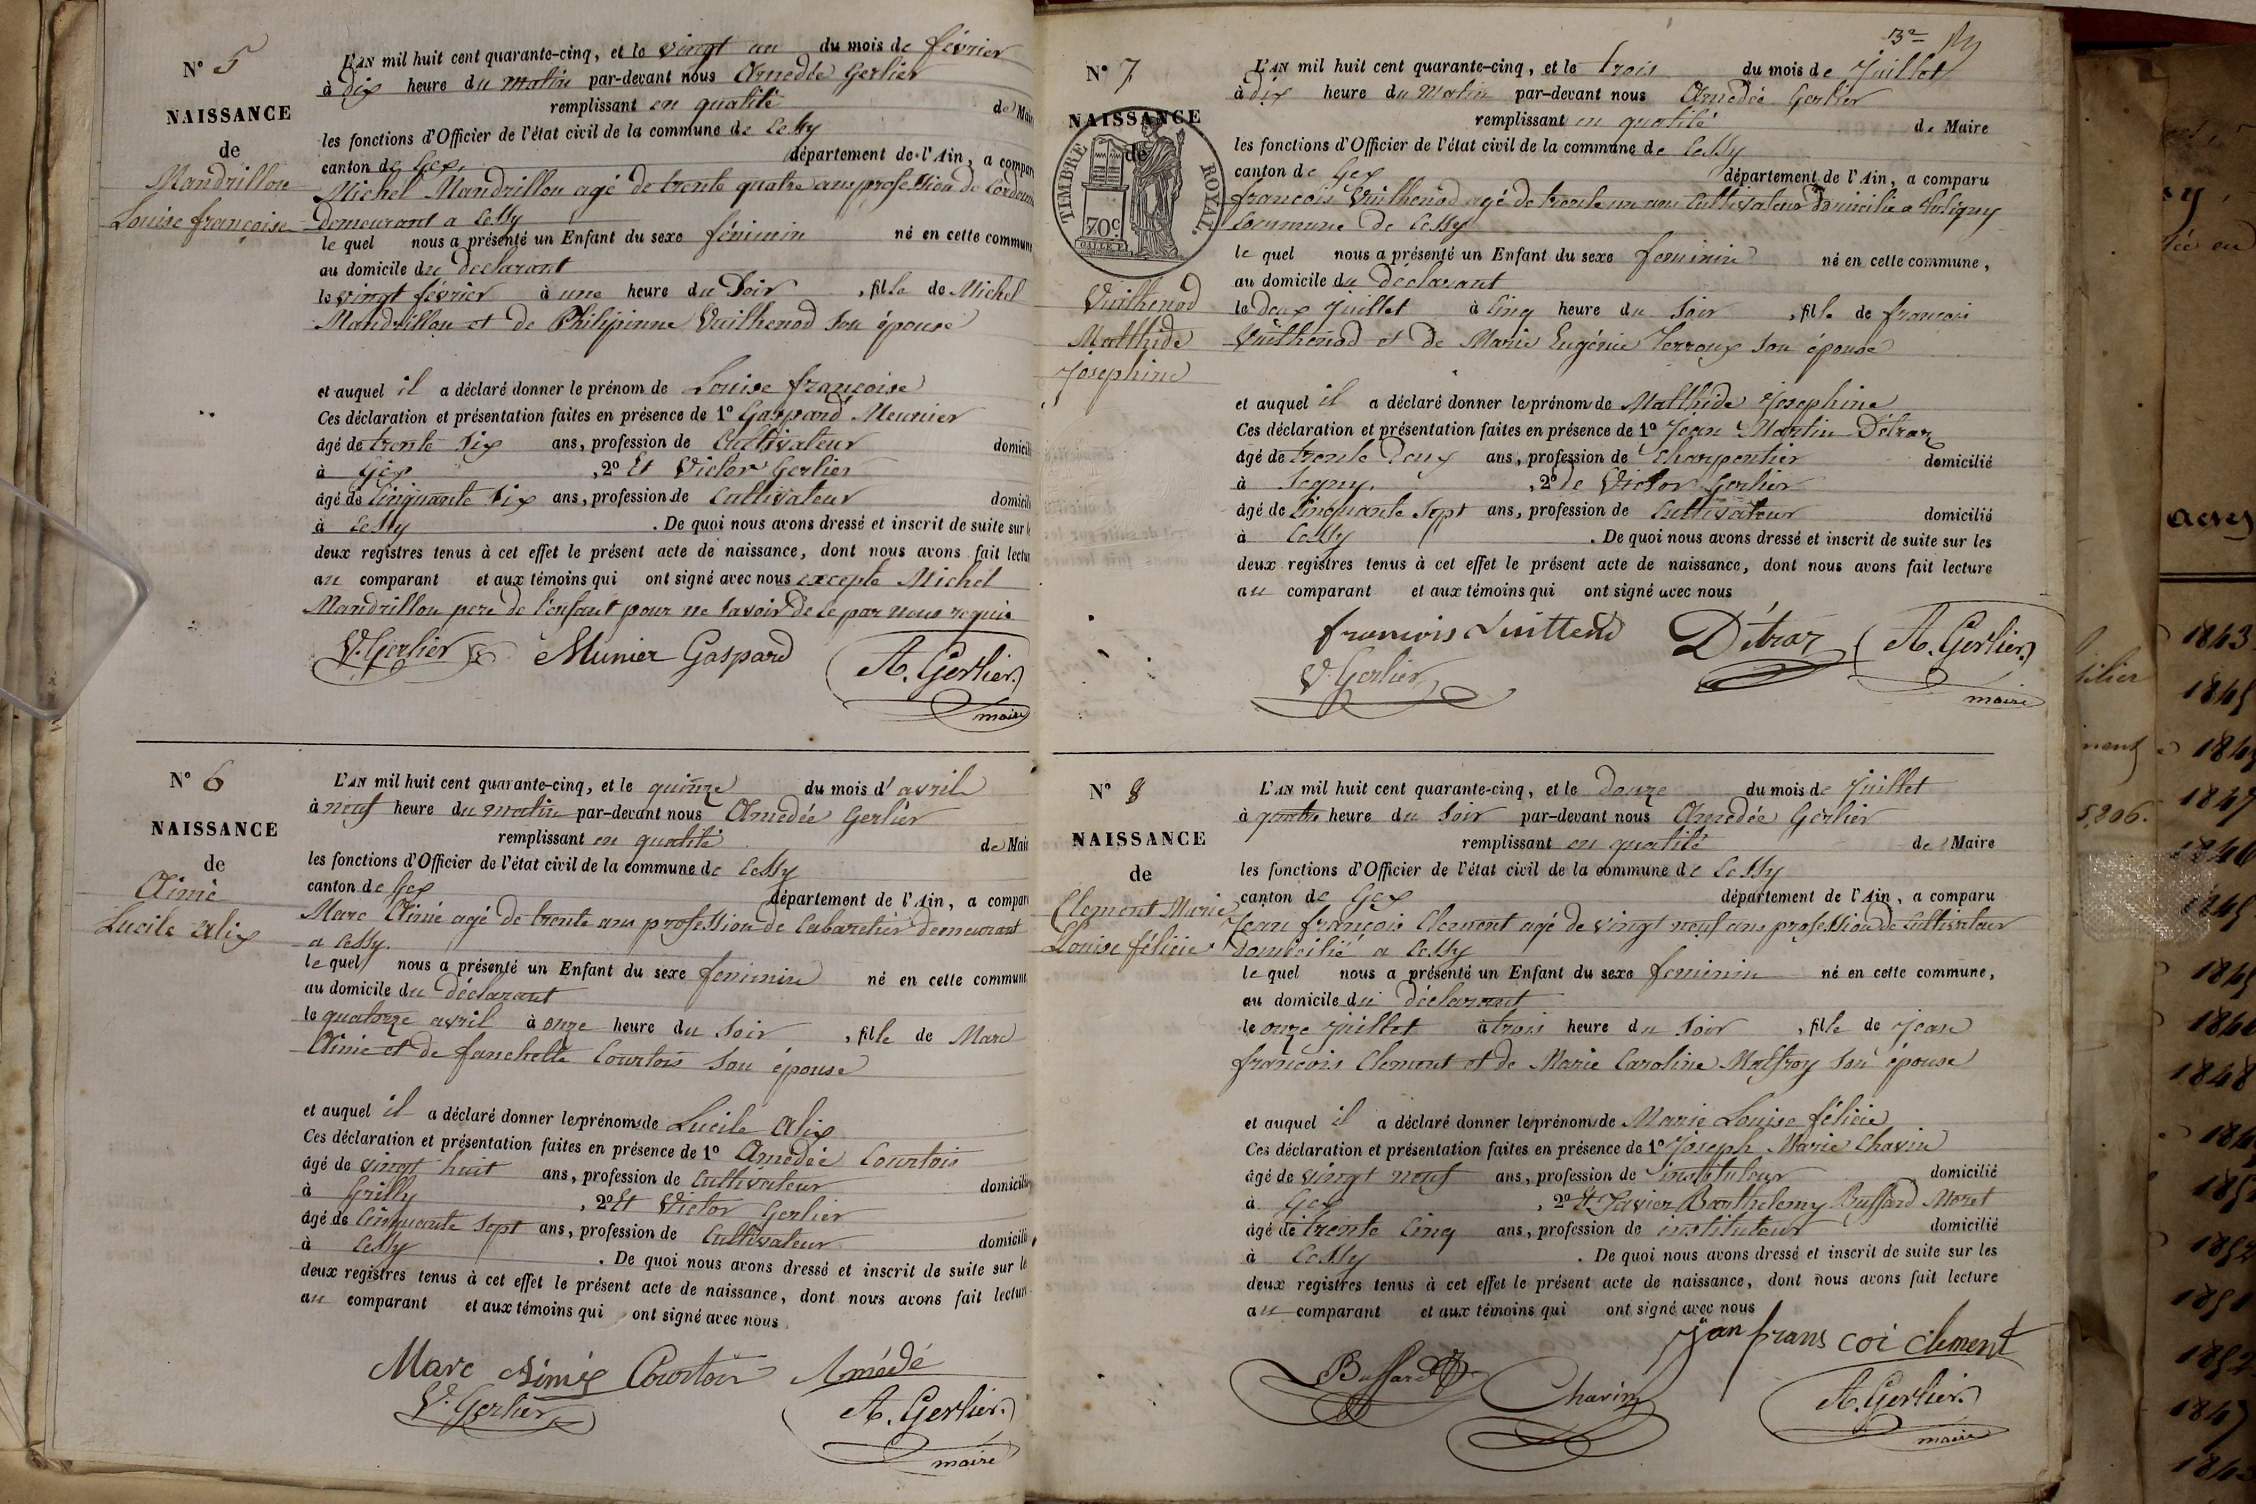 N° 5
NAISSANCE
de
Mandrillon
Louise françoise
L'AN mil huit cent quarante-cinq, et le vingt un du mois de février
à dix heure du matin par-devant nous Amedée Gerlier
remplissant en qualité de Mair
les fonctions d'Officier de l'état civil de la commune de Cessy
canton de Gex, département de l'Ain, a compar
Michel Mandrillon agé de trente quatre ans profession de Cordonn
demeurant a Cessy
le quel nous a présenté un Enfant du sexe féminin né en cette commune
au domicile du declarant
le vingt février à une heure du Soir, fille de Michel
Mandrillon et de Philipinne Vuilhenod son épouse
et auquel il a déclaré donner le prénom de Louise françoise
Ces déclaration et présentation faites en présence de 1° Gaspard Meunier
âgé de trente Six ans, profession de Cultivateur domicili
à Gex, 2° Et Victor Gerlier
âgé de Cinquante Six ans, profession de Cultivateur domicili
à Cessy. De quoi nous avons dressé et inscrit de suite sur l
deux registres tenus à cet effet le présent acte de naissance, dont nous avons fait lectur
au comparant et aux témoins qui ont signé avec nous excepte Michel
Mandrillon pere de l'enfant pour ne savoir de ce par nous requis
V. Gerlier Munier Gaspard A. Gerlier
maire
N° 6
NAISSANCE
de
Aimé
Lucile Alix
L'AN mil huit cent quarante-cinq, et le quinze du mois d'avril
à neuf heure du matin par-devant nous Amedée Gerlier
remplissant en qualité de Mai
les fonctions d'Officier de l'état civil de la commune de Cessy
canton de Gex département de l'Ain, a compar
Marc Aimé agé de trente ans profession de Cabaretier demeurant
a Cessy.
le quel nous a présenté un Enfant du sexe feminin né en cette commun
au domicile du déclarant
le quatorze avril à onze heure du Soir, fille de Marc
Aimé et de fanchette Courtois Son épouse
et auquel il a déclaré donner les prénoms de Lucile Alix
Ces déclaration et présentation faites en présence de 1° Amedée Courtois
âgé de vingt huit ans, profession de Cultivateur domicili
à Grilly, 2° Et Victor Gerlier
âgé de Cinquante Sept ans, profession de Cultivateur domicili
à Cessy. De quoi nous avons dressé et inscrit de suite sur le
deux registres tenus à cet effet le présent acte de naissance, dont nous avons fait lectur
au comparant et aux témoins qui ont signé avec nous
Marc Aimé Courtois Amédé
V. Gerlier A. Gerlier
maire
N° 7
NAISSANCE
de
TIMBRE ROYAL
70c
Vuilhenod
Mathide
Josephine
L'AN mil huit cent quarante-cinq, et le trois du mois de Juillet
à dix heure du Matin par-devant nous Amedée Gerlier
remplissant en qualité de Maire
les fonctions d'Officier de l'état civil de la commune de Cessy
canton de Gex département de l'Ain, a comparu
francois Vuilhenod agé de trente un ans Cultivateur domicilié a
Commune de Cessy
le quel nous a présenté un Enfant du sexe feminin né en cette commune,
au domicile du déclarant
le deux Juillet à Cinq heure du Soir, fille de francois
Vuilhenod et de Marie Eugénie Terroux Son épouse
et auquel il a déclaré donner les prénoms de Mathide Josephine
Ces déclaration et présentation faites en présence de 1° Jean Martin Détraz
âgé de trente deux ans, profession de Charpentier domicilié
à Segny., 2° de Victor Gerlier
âgé de Cinquante Sept ans, profession de Cultivateur domicilié
à Cessy. De quoi nous avons dressé et inscrit de suite sur les
deux registres tenus à cet effet le présent acte de naissance, dont nous avons fait lecture
au comparant et aux témoins qui ont signé avec nous
francois Détraz A. Gerlier
V. Gerlier maire
N° 8
NAISSANCE
de
Clement Marie
Louise félicie
L'AN mil huit cent quarante-cinq, et le douze du mois de Juillet
à quatre heure du Soir par-devant nous Amedée Gerlier
remplissant en qualité de Maire
les fonctions d'Officier de l'état civil de la commune de Cessy
canton de Gex département de l'Ain, a comparu
Jean françois Clement agé de vingt neuf ans profession de Cultivateur
domicilié a Cessy
le quel nous a présenté un Enfant du sexe feminin né en cette commune,
au domicile du déclarant
le onze Juillet à trois heure du Soir, fille de Jean
françois Clement et de Marie Caroline Maffroy son épouse
et auquel il a déclaré donner les prénoms de Marie Louise félicie
Ces déclaration et présentation faites en présence de 1° Joseph Marie Chavin
âgé de vingt neuf ans, profession de instituteur domicilié
à Gex, 2° Et Xavier Barthelemy Buffard Moret
âgé de trente Cinq ans, profession de instituteur domicilié
à Cessy. De quoi nous avons dressé et inscrit de suite sur les
deux registres tenus à cet effet le présent acte de naissance, dont nous avons fait lecture
au comparant et aux témoins qui ont signé avec nous
Jean frans coi clement
Buffard Chavin A. Gerlier
maire
1843
1845
1847
1848
1847